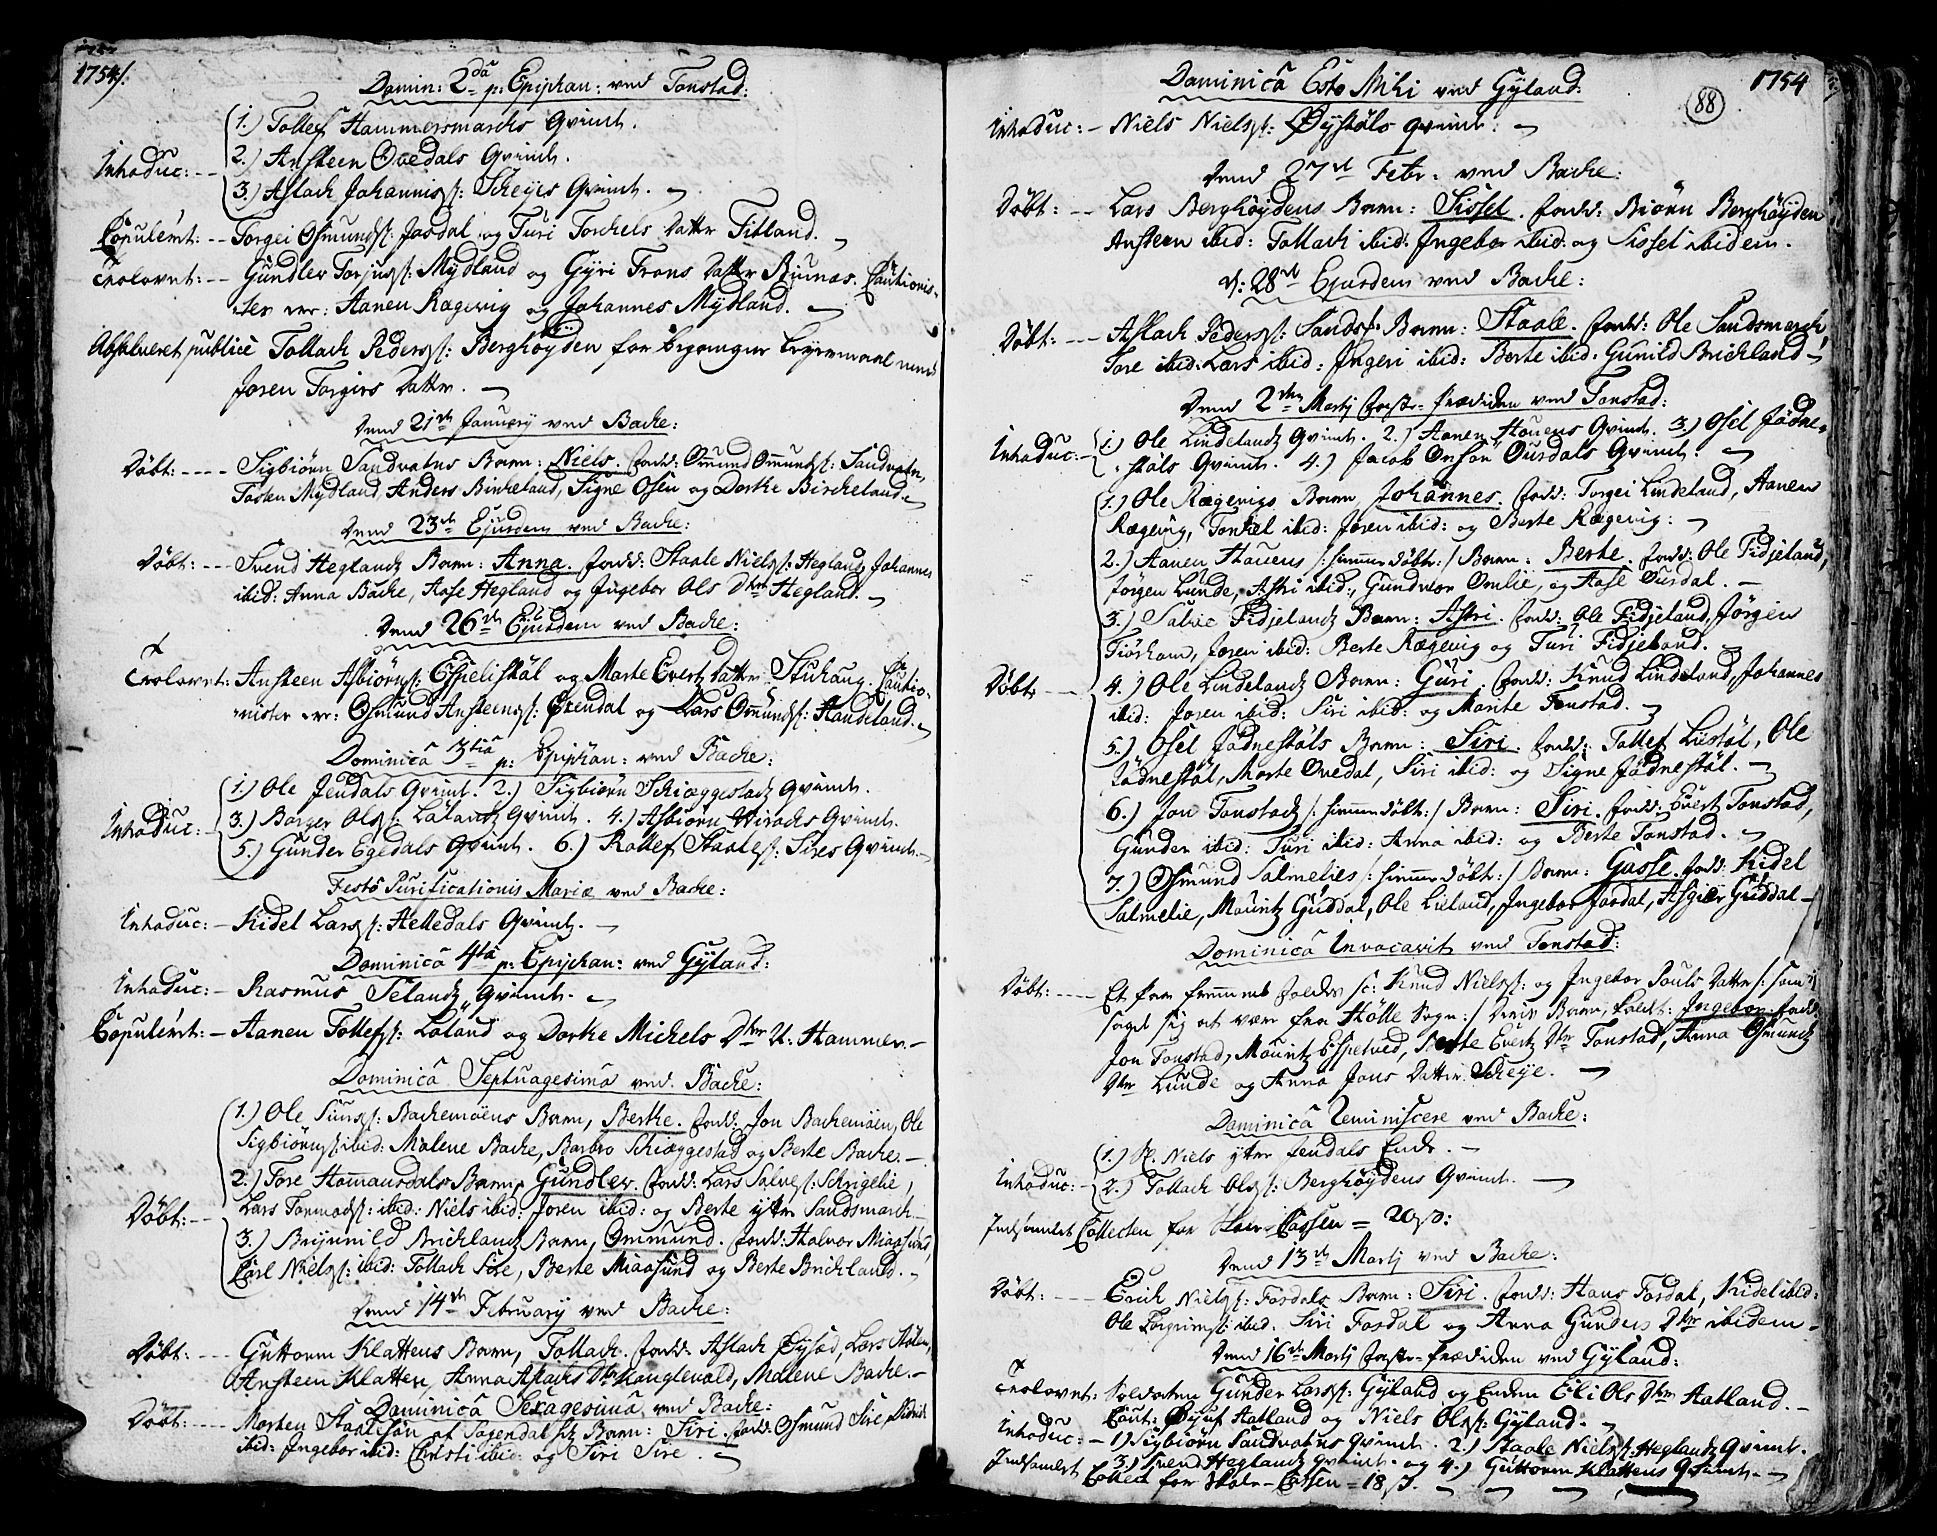 1754/.
Domin: 2da p: Epiphan: ved Tonstad:
1.) Tollef Hammersmarchs Qvinde.
2.) Ansteen Ovedals Qvinde.
Introduc: --
3.) Aslach Johanniss: Scheyes Qvinde. —
Copuleret: -- Torgei Osmunds: Josdal og Turi Torchels Datter Fitland. —
Trolovet: -- Gundler Torjus: Mydland og Gyri Frans Datter Birnæs. Cautionis-
ter ere: Aanen Rægevig og Johannes Mydland. —
Absolveret publicè Tollach Peders: Berghöyden for begangne Leyermaal med
Joren Torgiers Datter. —
Dend 21de January ved Bache:
Döbt: ---- Sigbiörn Sandvatns Barn: Niels. fadd: Ommund Ommunds: Sandvatn,
Tosten Mydland, Anders Birkeland, Signe Osen og Dorthe Birckeland. —
Dend 23de Ejusdem ved Bache:
Döbt: --- Svend Heglandz Barn: Anna. fadd: Staale Niels: Hegland, Johannes
ibid: Anna Bache, Aase Hegland og Ingebor Ols Dtter Hegland. —
Dend 26de Ejusdem ved Bache:
Trolovet: Ansteen Asbiörns: Espelistöl og Marte Evertz Datter Stuhaug. Cautio-
nister ere: Osmund Ansteens: Öxendal og Lars Omunds: Handeland. —
Dominica 3tia p: Epiphan: ved Bache:
1.) Ole Jendals Qvinde. 2.) Sigbiörn Schiæggestadz Qvinde.
Introduc: -- 3.) Börger Ols: Lölandz Qvinde. 4.) Asbiörn Virachs Qvinde.
5.) Gunder Egedals Qvinde. 6.) Rollef Staales: Sires Qvinde. —
Festo Purificationis Mariæ ved Bache:
Introduc: — Kidel Lars: Helledals Qvinde. —
Dominica 4ta p: Epiphan: ved Gyland:
Introduc: — Rasmus Selandz Qvinde. —
Copuleret: — Aanen Tollefs: Löland og Dorthe Michels Dtter U. Hammer. —
Dominica Septuagesima ved Bache:
1.) Ole Suns: Bachemöens Barn, Berthe. fadd: Jon Bachemöen, Ole
Sigbiörns: ibid: Malene Bache, Barbro Schiæggestad og Berte Bache. —
2.) Tore Homansdals Barn, Gundler. fadd: Lars Salves: Schrigelie,
Lars Tormods: ibid: Niels ibid: Joren ibid: og Berte ytter Sandsmarch —
Döbt: --
3.) Brynnild Brichlandz Barn, Ommund. fadd: Halvor Miaasund,
Carl Niels: ibid: Tollach Sire, Berte Miaasund og Berte Brichland. —
Dend 14de February ved Bache:
Döbt: --- Guttorm Klattens Barn, Tollach. fadd: Aslach Öysæd, Lars Stölen,
Ansteen Klatten, Anna Aslachs Dtter Kauglevold, Malene Bache. —
Dominica Sexagesima ved Bache:
Döbt: ---- Morten Staalesön af Sogndal sit Barn: Siri. fadd: Osmund Sire,
ibid: Ingebor ibid: Christi ibid: og Siri Sire. —
1754
88
Dominica Esto Mihi ved Gyland:
Introduc: — Niels Niels: Öystöls qvinde: —
Dend 27de Febr: ved Bache:
Döbt: -- Lars Berghöydens Barn: Sissel. fadd: Biörn Berghöyden
Ansteen ibid: Tollach ibid: Ingebor ibid: og Sissel ibidem.
d: 28de Ejusdem ved Bache:
Döbt: --- Aslach Peders: Sands: Barn: Staale. fadd: Ole Sandsmarch,
Tore ibid: Lars ibid: Ingeri ibid: Berte ibid: Gunild Brichland —
Dend 2den Martj faste-Prædiken ved Tonstad:
Introduc: — 1.) Ole Lindelandz Qvinde. 2.) Aanen Houens Qvinde. 3.) Osel Jödne-
stöls Qvinde. 4.) Jacob Ousdals Qvinde. —
1.) Ole Rægevigs Barn Johannes. fadd: Torgei Lindeland, Aanen
Rægevig, Tonkel ibid: Joren ibid: og Berte Rægevig: —
2.) Aanen Houens /: hiemme döbte :/ Barn: Berthe. fadd: Ole Fidjeland,
Jörgen Lunde, Astri ibid:, Gundvor Omlie, og Aase Ousdal. —
3.) Salve Fidjelandz Barn: Astri. fadd: Ole Fidjeland, Jörgen
Tiörhom, Joren ibid: Berte Rægevig og Turi Fidjeland. —
Döbt --- 4.) Ole Lindelandz Barn: Guri. fadd: Knud Lindeland, Johannes
ibid: Joren ibid: Siri ibid: og Marite Tonstad. —
5.) Osel Jödnestöls Barn: Siri. fadd: Tollef Liestöl, Ole
Jödnestöl, Marte Ovedal, Siri ibid: og Signe Jödnestöl. —
6.) Jon Tonstadz /: hiemme döbt :/ Barn: Siri. fadd: Evert Tonstad,
Gunder ibid: Turi ibid: Anna ibid: og Berte Tonstad. —
7.) Osmund Salmelies /: hiemme döbt :/ Barn: Gusse. fadd: Kidel
Salmelie, Mouritz Guddal, Ole Lieland, Ingebor Josdal, Asgier Guddal —
Dominica Invocavit ved Tonstad:
Döbt: ---- Et par fremmet folckes /: Knud Niels: og Ingebor Pouls Datter /: som
saged sig at være fra Hölle Sogn :/ Deris Barn, kaldt: Ingebor. fadd:
Jon Tonstad, Mouritz Espetved, Berte Evertz Dtter Tonstad, Anna Osmundz
Dtter Lunde og Anna Jons Datter Scheye. —
Dominica Reminiscere ved Bache:
1.) Sl. Niels ytter Jendals Enke. —
Introduc: — 2.) Tollach Ols: Berghöydens Qvinde. —
Indsamlet Collecten for Skole-Cassen = 20 s:
Dend 13de Martj ved Bache:
Döbt: ---- Erich Niels: Fosdals Barn: Siri. fadd: Hans Fosdal, Kidel ibid:
Ole Torgrims: ibid: Siri Fosdal og Anna Gunders Dtter ibidem —
Dend 16de Martj faste-Prædiken ved Gyland:
Trolovet: Soldaten Gunder Lars: Gyland og Enken Eli Ols Dtter Aatland. —
Caut: Öyuf Aatland og Niels Ols: Gyland. —
Introduc: — 1) Sigbiörn Sandvatns Qvinde. 2.) Staale Niels: Heglandz Qvinde.
3.) Svend Heglandz Qvinde. og 4.) Guttorm Klattens Qvinde. —
Indsamlet Collect for Skole-Cassen = 18 s.